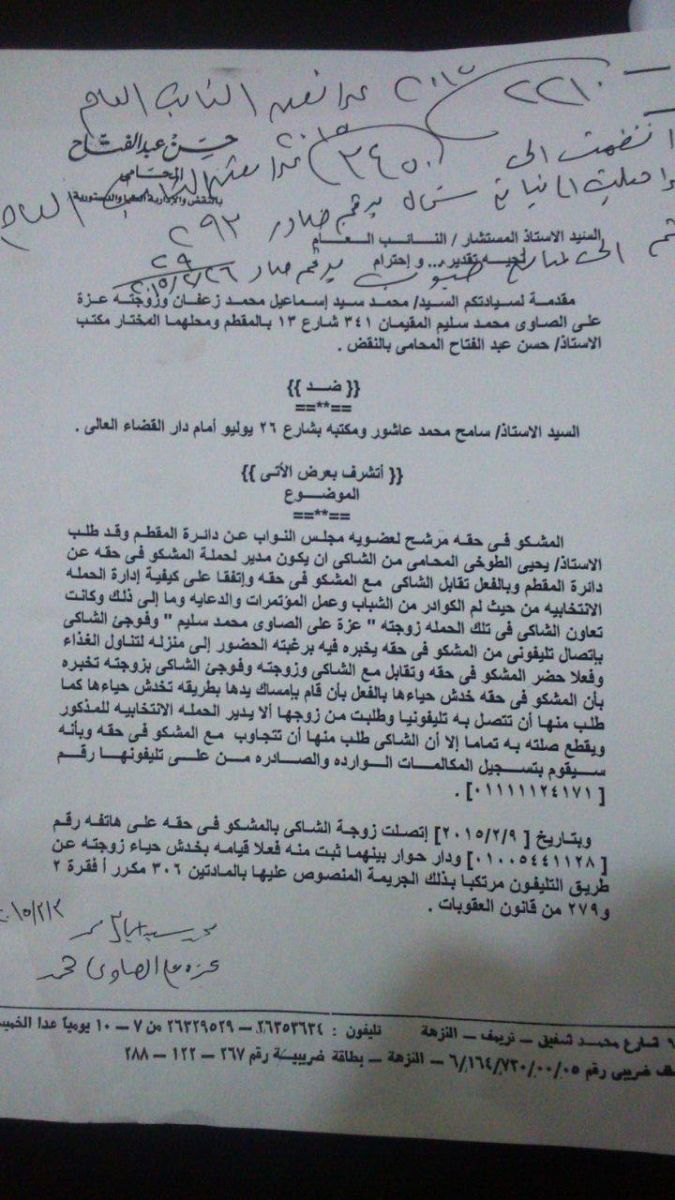 ٢٢١٠ ٢٠١٥ عرائض النائب العام
حسن عبدالفتاح
المحامى
بالنقض والإدارية العليا والدستورية
انضمت الى ٣٤٥٠ ٢٠١٥ عرائض النائب العام
شمال برقم صادر ٢٩٣
السيد الاستاذ المستشار / النـائـب العـــام
تحيـه تقدير ... و إحترام
برقم صادر ٢٩ ٢٠١٥/٢/٢٦
مقدمة لسيادتكم السيد/ محمد سيد إسماعيل محمد زعفان وزوجته عزة
على الصاوى محمد سليم المقيمان ٣٤١ شارع ١٣ بالمقطم ومحلهما المختار مكتب
الاستاذ/ حسن عبد الفتاح المحامى بالنقض .
{{ ضـد }}
==**==
السيد الاستاذ/ سامح محمد عاشور ومكتبه بشارع ٢٦ يوليو أمام دار القضاء العالى .
{{ أتشرف بعرض الأتى }}
الموضـــوع
==**==
المشكو فى حقه مرشح لعضويه مجلس النواب عن دائرة المقطم وقد طلب
الاستاذ/ يحيى الطوخى المحامى من الشاكى ان يكون مدير لحملة المشكو فى حقه عن
دائرة المقطم وبالفعل تقابل الشاكى مع المشكو فى حقه وإتفقا على كيفية إدارة الحمله
الانتخابيه من حيث لم الكوادر من الشباب وعمل المؤتمرات والدعايه وما إلى ذلك وكانت
تعاون الشاكى فى تلك الحمله زوجته " عزة على الصاوى محمد سليم " وفوجئ الشاكى
بإتصال تليفونى من المشكو فى حقه يخبره فيه برغبته الحضور إلى منزله لتناول الغذاء
وفعلا حضر المشكو فى حقه وتقابل مع الشاكى وزوجته وفوجئ الشاكى بزوجته تخبره
بأن المشكو فى حقه خدش حياءها بالفعل بأن قام بإمساك يدها بطريقه تخدش حياءها كما
طلب منها أن تتصل به تليفونيا وطلبت من زوجها ألا يدير الحمله الانتخابيه للمذكور
ويقطع صلته به تماما إلا أن الشاكى طلب منها أن تتجاوب مع المشكو فى حقه وبأنه
سيقوم بتسجيل المكالمات الوارده والصادره من على تليفونها رقم
[ ٠١١١١١٢٤١٧١ ] .
وبتاريخ [ ٢٠١٥/٢/٩ ] إتصلت زوجة الشاكى بالمشكو فى حقه على هاتفه رقم
[ ٠١٠٠٥٤٤١١٢٨ ] ودار حوار بينهما ثبت منه فعلا قيامه بخدش حياء زوجته عن
طريق التليفون مرتكبا بذلك الجريمة المنصوص عليها بالمادتين ٣٠٦ مكرر أ فقرة ٢
و٢٧٩ من قانون العقوبات .
محمد سيد إسماعيل
عزه على الصاوى محمد
شارع محمد شفيق – تريمف – النزهة تليفون : ٢٦٣٥٣٦٣٤ – ٢٦٣٢٩٥٢٩ من ٧ – ١٠ يومياً عدا الخميس
ضريبى رقم ٦/١٦٤/٧٣٠/٠٠/٠٥ – النزهة – بطاقة ضريبية رقم ٢٦٧ – ١٢٢ – ٢٨٨